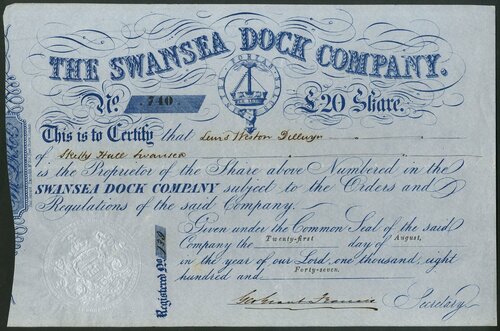 THE SWANSEA DOCK COMPANY.
No. 740 £20 Share.
This is to Certify that Lewis Weston Dillwyn
of Sketty Hall Swansea
is the Proprietor of the Share above Numbered in the
SWANSEA DOCK COMPANY subject to the Orders and
Regulations of the said Company.
Given under the Common Seal of the said
Company the Twenty-first day of August,
in the year of our Lord, one thousand, eight
hundred and Forty-seven.
Geo Grant Francis Secretary.
Registered No.